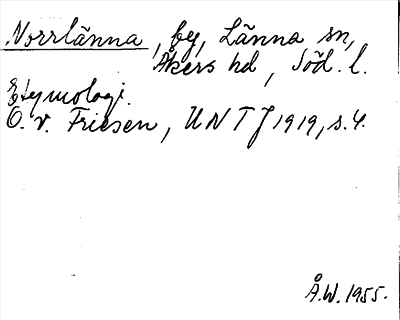 Norrlänna, by, Länna sn,
Åkers hd, Söd. l.
Etymologi.
O. v. Friesen, UNTJ 1919, s. 4.
Å.W. 1955.